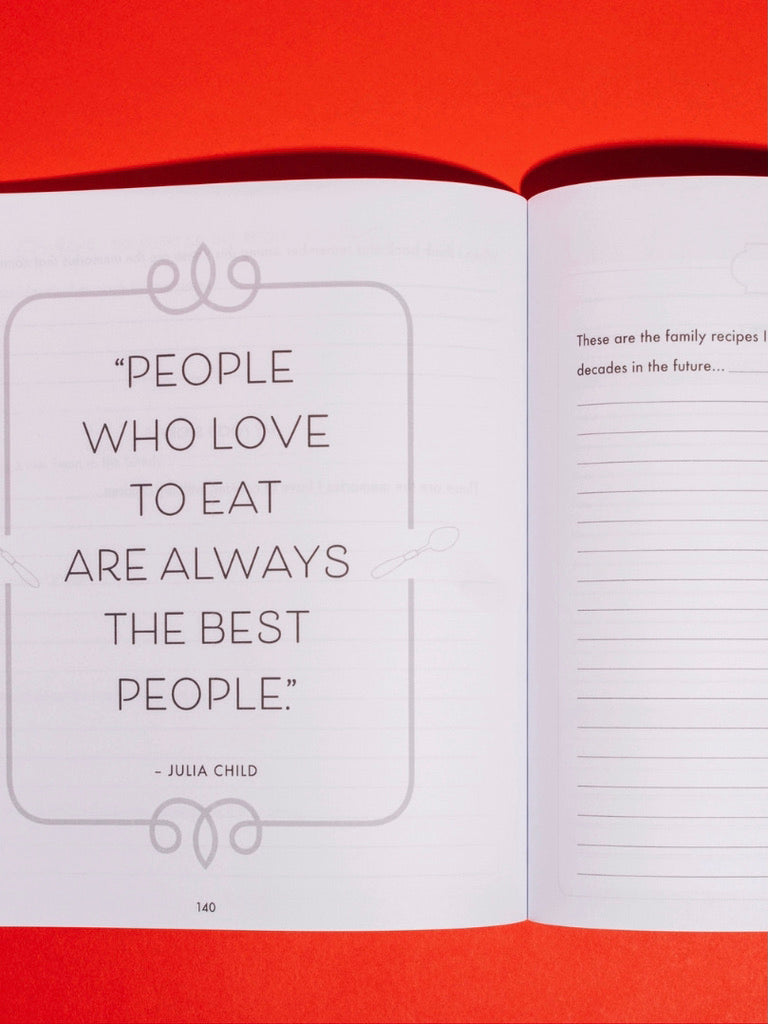 “PEOPLE
WHO LOVE
TO EAT
ARE ALWAYS
THE BEST
PEOPLE.”
– JULIA CHILD
140
These are the family recipes I
decades in the future...